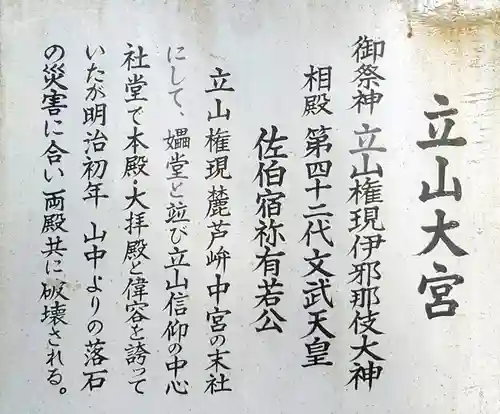 立山大宮
御祭神 立山権現伊邪那伎大神
相殿 第四十二代文武天皇
佐伯宿祢有若公
立山権現麓芦峅中宮の末社
にして、媼堂と竝び立山信仰の中心
社堂で本殿・大拝殿と偉容を誇って
いたが明治初年 山中よりの落石
の災害に合い両殿共に破壊される。